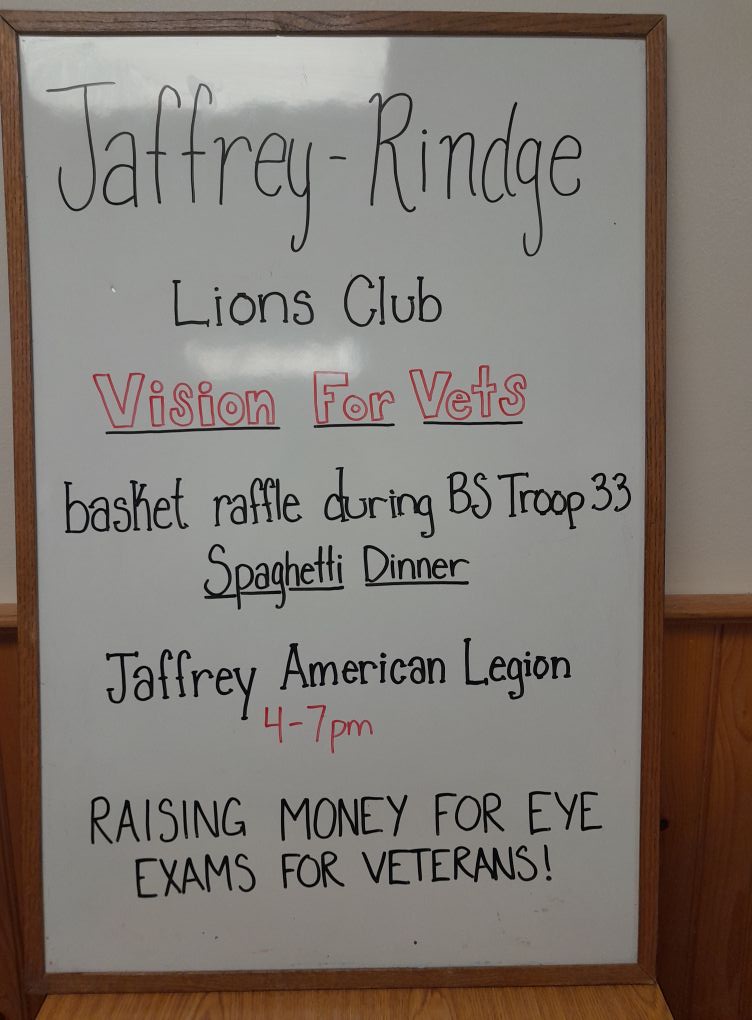 Jaffrey-Rindge
Lions Club
Vision For Vets
basket raffle during BS Troop 33
Spaghetti Dinner
Jaffrey American Legion
4-7pm
RAISING MONEY FOR EYE
EXAMS FOR VETERANS!